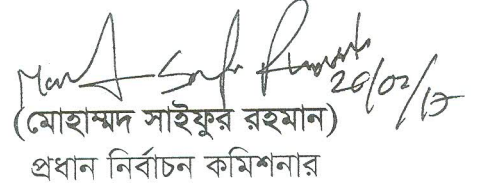 26/02/17
(মোহাম্মদ সাইফুর রহমান)
প্রধান নির্বাচন কমিশনার